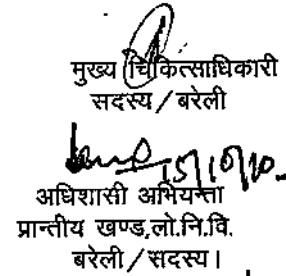 मुख्य चिकित्साधिकारी
सदस्य / बरेली
15/10/10.
अधिशासी अभियन्ता
प्रान्तीय खण्ड,लो.नि.वि.
बरेली / सदस्य।